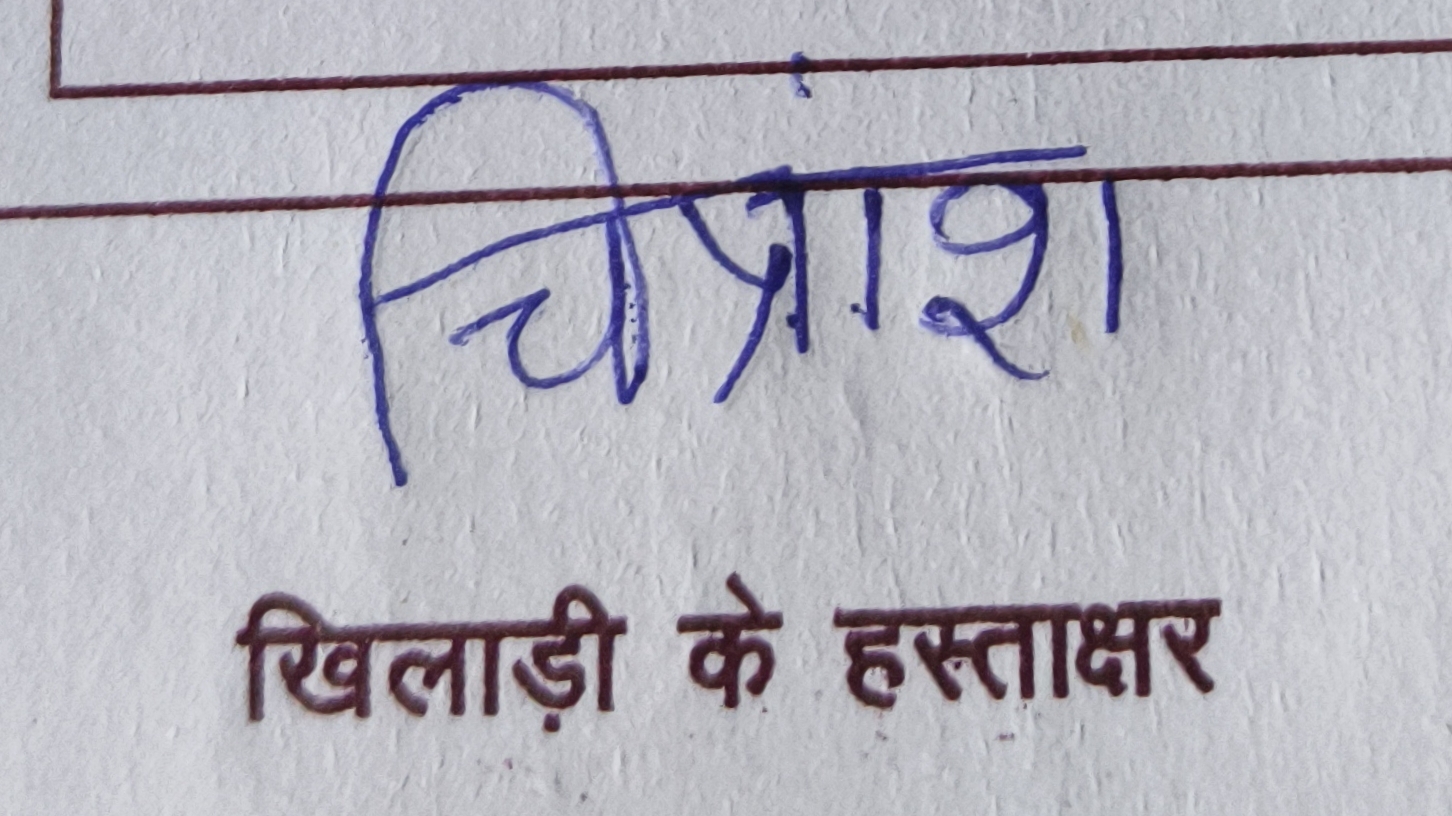 चित्रांश
खिलाड़ी के हस्ताक्षर